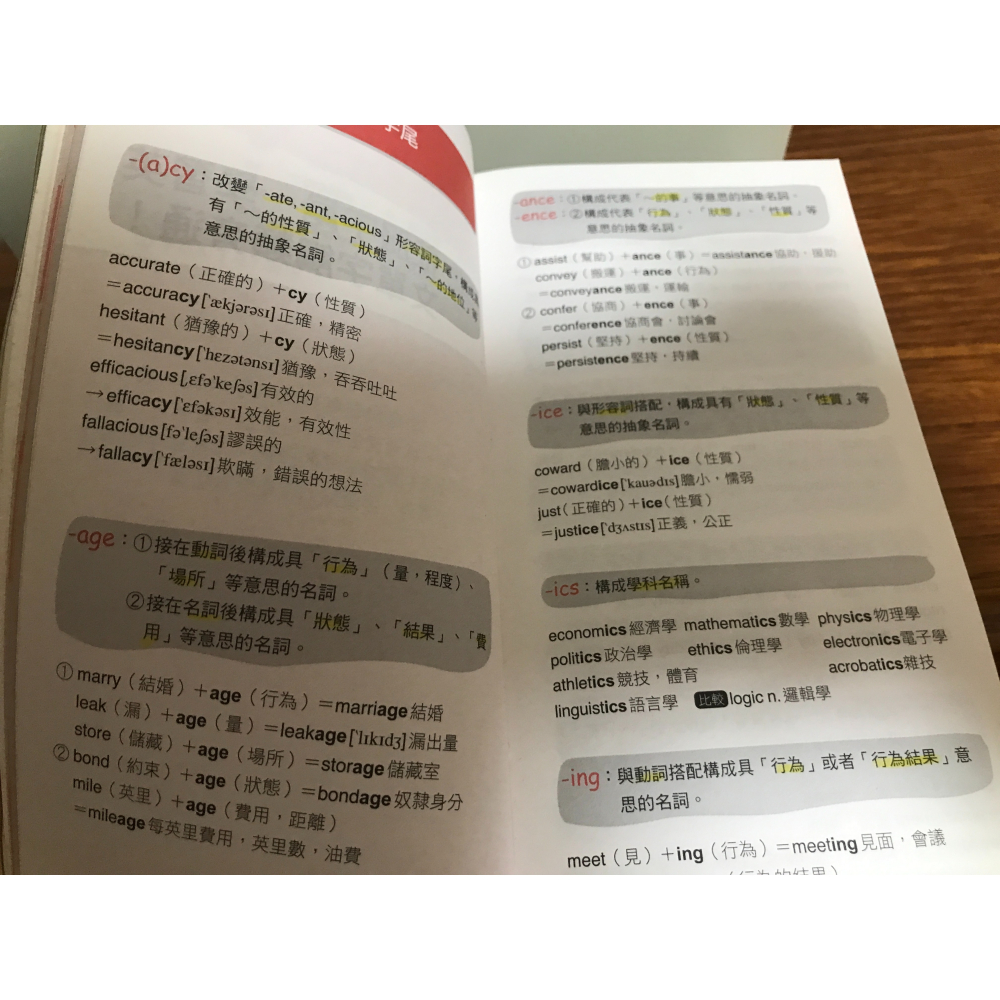 字尾
-(a)cy：改變「-ate, -ant, -acious」形容詞字尾，構成具
有「～的性質」、「狀態」、「～的地位」等
意思的抽象名詞。
accurate（正確的）＋cy（性質）
＝accuracy['ækjərəsɪ]正確，精密
hesitant（猶豫的）＋cy（狀態）
＝hesitancy['hɛzətənsɪ]猶豫，吞吞吐吐
efficacious[ˌɛfə'keʃəs]有效的
→efficacy['ɛfəkəsɪ]效能，有效性
fallacious[fə'leʃəs]謬誤的
→fallacy['fæləsɪ]欺瞞，錯誤的想法
-age：①接在動詞後構成具「行為」（量，程度）、
「場所」等意思的名詞。
②接在名詞後構成具「狀態」、「結果」、「費
用」等意思的名詞。
①marry（結婚）＋age（行為）＝marriage結婚
leak（漏）＋age（量）＝leakage['lɪkɪdʒ]漏出量
store（儲藏）＋age（場所）＝storage儲藏室
②bond（約束）＋age（狀態）＝bondage奴隸身分
mile（英里）＋age（費用，距離）
＝mileage每英里費用，英里數，油費
-ance：①構成代表「～的事」等意思的抽象名詞．
-ence：②構成代表「行為」．「狀態」．「性質」等
意思的抽象名詞．
①assist（幫助）＋ance（事）＝assistance協助．援助
convey（搬運）＋ance（行為）
＝conveyance搬運．運輸
②confer（協商）＋ence（事）
＝conference協商會．討論會
persist（堅持）＋ence（性質）
＝persistence堅持，持續
-ice：與形容詞搭配，構成具有「狀態」、「性質」等
意思的抽象名詞。
coward（膽小的）＋ice（性質）
＝cowardice['kauədɪs]膽小，懦弱
just（正確的）＋ice（性質）
＝justice['dʒʌstɪs]正義，公正
-ics：構成學科名稱。
economics經濟學 mathematics數學 physics物理學
politics政治學 ethics倫理學 electronics電子學
athletics競技，體育 acrobatics雜技
linguistics語言學 比較 logic n.邏輯學
-ing：與動詞搭配構成具「行為」或者「行為結果」意
思的名詞。
meet（見）＋ing（行為）＝meeting見面，會議